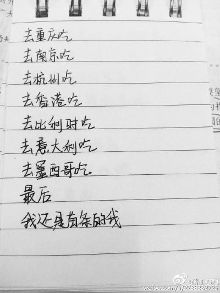 去重庆吃
去南京吃
去杭州吃
去香港吃
去比利时吃
去意大利吃
去墨西哥吃
最后
我还是有条的我